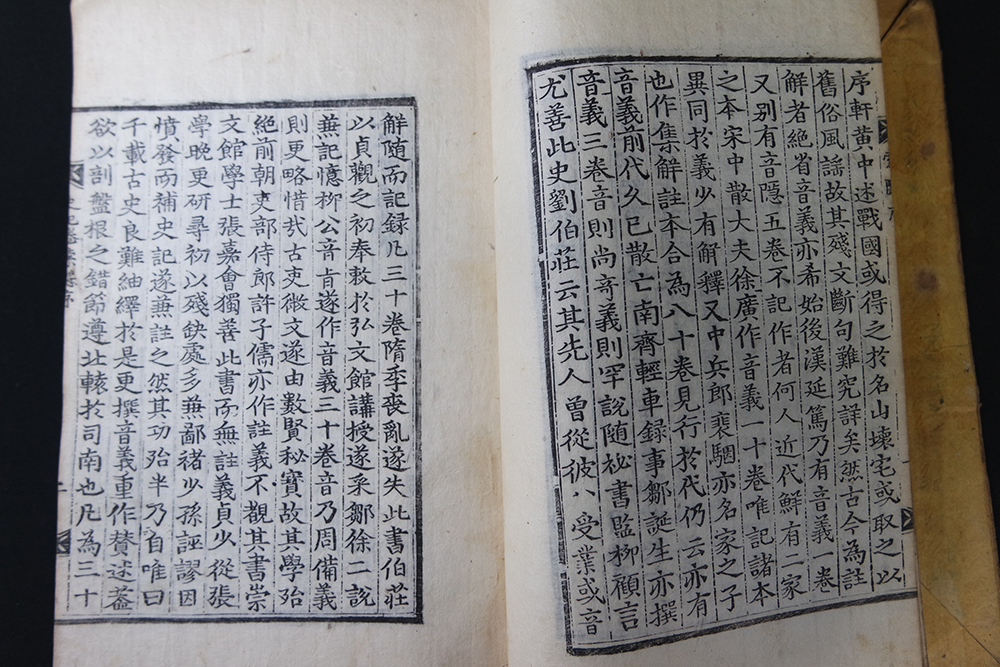 序軒黃中述戰國或得之於名山壞宅或取之以
舊俗風謡故其殘文斷句難究詳矣然古今為註
解者絶省音義亦希始後漢延篤乃有音義一卷
又别有音隱五卷不記作者何人近代鮮有二家
之本宋中散大夫徐廣作音義一十卷唯記諸本
異同於義少有解釋又中兵郎裴駰亦名家之子
也作集解註本合為八十卷見行於代仍云亦有
音義前代久已散亡南齊輕車録事鄒誕生亦撰
音義三卷音則尚竒義則罕説随祕書監柳顧言
尤善此史劉伯莊云其先人曾從彼八受業或音
解随而記録凡三十卷隋季喪亂遂失此書伯莊
以貞觀之初奉敕於弘文館講授遂采鄒徐二説
兼記憶柳公音旨遂作音義三十卷音乃周備義
則更略惜哉古史微文遂由數賢秘寶故其學殆
絶前朝吏部侍郎許子儒亦作註義不覩其書崇
文館學士張嘉會獨善此書而無註義貞少從張
學晚更研尋初以殘缺處多兼鄙褚少孫誣謬因
憤發而補史記遂兼註之然其功殆半乃自唯曰
千載古史良難紬繹於是更撰音義重作賛述葢
欲以剖盤根之錯節遵北轅於司南也凡為三十